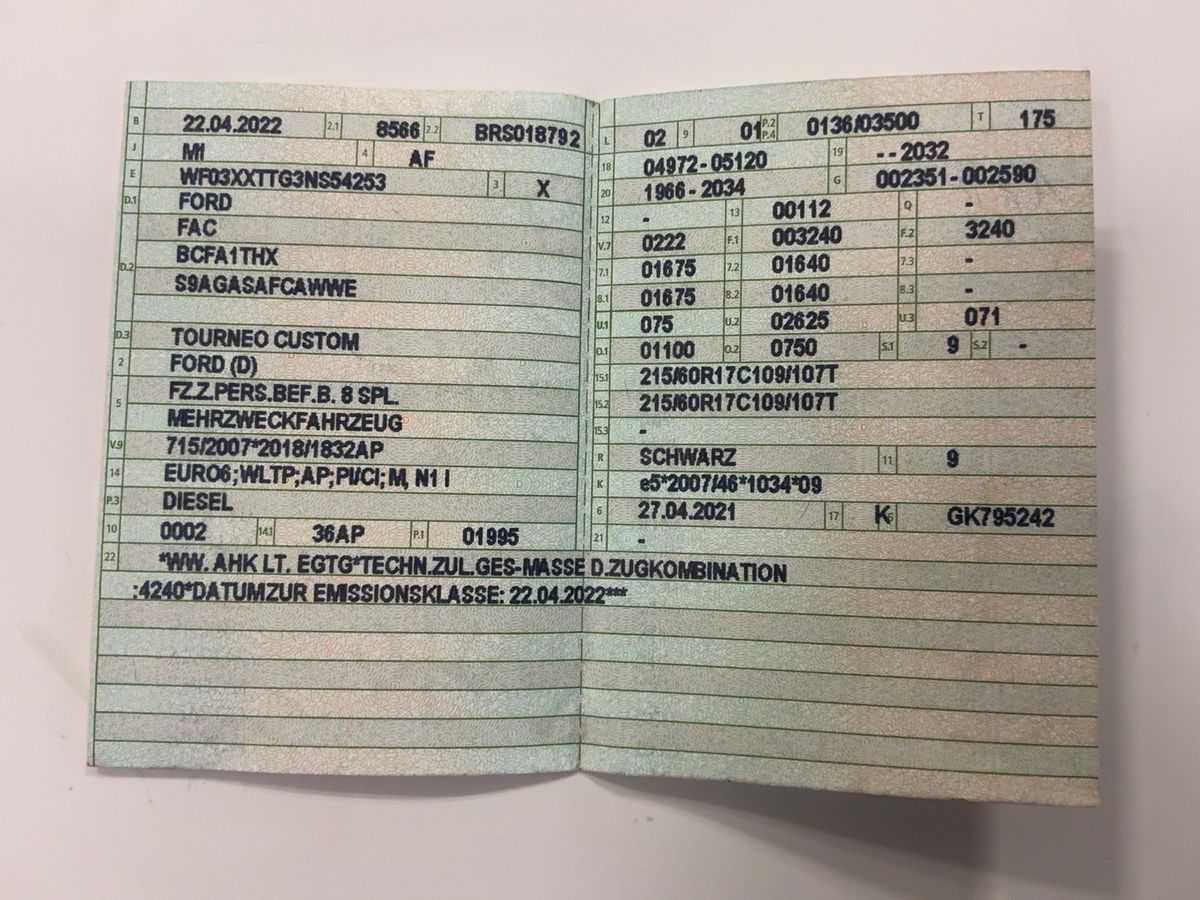 B 22.04.2022 2.1 8566 2.2 BRS018792
J M1 4 AF
E WF03XXTTG3NS54253 3 X
D.1 FORD
FAC
D.2 BCFA1THX
S9AGASAFCAWWE
D.3 TOURNEO CUSTOM
2 FORD (D)
5 FZ.Z.PERS.BEF.B. 8 SPL.
MEHRZWECKFAHRZEUG
V.9 715/2007*2018/1832AP
14 EURO6;WLTP;AP;PI/CI; M, N1 I
P.3 DIESEL
10 0002 14.1 36AP P.1 01995
L 02 9 01 P.2 P.4 0136/03500 T 175
18 04972-05120 19 --2032
20 1966-2034 G 002351-002590
12 - 13 00112 Q -
V.7 0222 F.1 003240 F.2 3240
7.1 01675 7.2 01640 7.3 -
8.1 01675 8.2 01640 8.3 -
U.1 075 U.2 02625 U.3 071
O.1 01100 O.2 0750 S.1 9 S.2 -
15.1 215/60R17C109/107T
15.2 215/60R17C109/107T
15.3 -
R SCHWARZ 11 9
K e5*2007/46*1034*09
6 27.04.2021 17 K 16 GK795242
21 -
22 *WW. AHK LT. EGTG*TECHN.ZUL.GES-MASSE D.ZUGKOMBINATION
:4240*DATUMZUR EMISSIONSKLASSE: 22.04.2022***